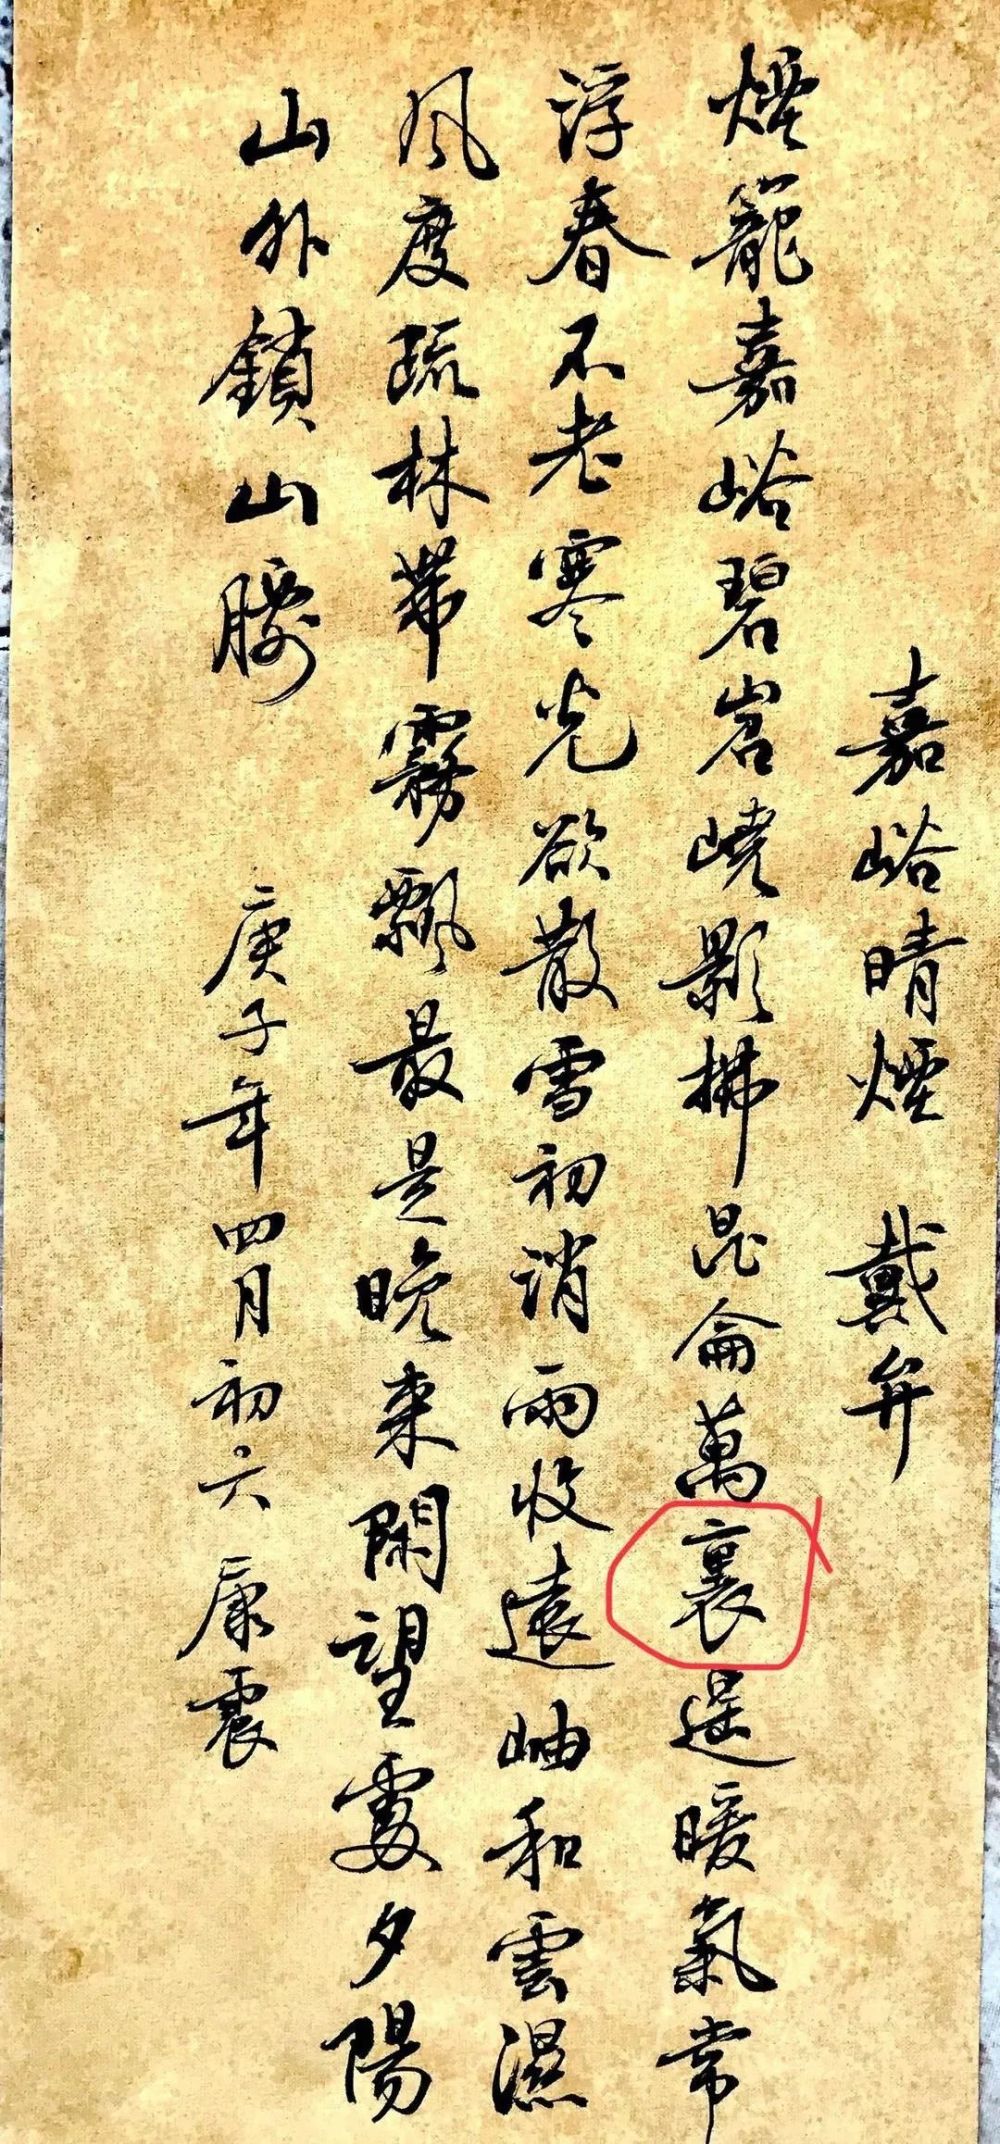 嘉峪晴煙 戴弁
煙籠嘉峪碧岧嶢影拂昆侖萬裏遥暖氣常
浮春不老寒光欲散雪初消雨收遠岫和雲濕
風度疏林帶霧飄最是晚來閑望處夕陽
山外鎖山腰
庚子年四月初六 康震